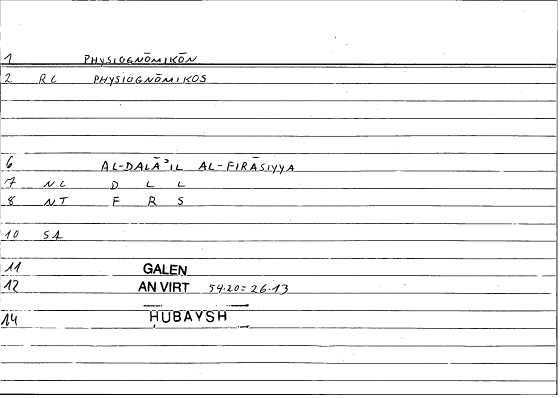 1 PHYSIOGNŌMIKŌN
2 RC PHYSIOGNŌMIKOS
6 AL-DALĀʾIL AL-FIRĀSIYYA
7 NC D L L
8 NT F R S
10 S1
11 GALEN
12 AN VIRT 54.20 = 26.13
14 ḤUBAYSH